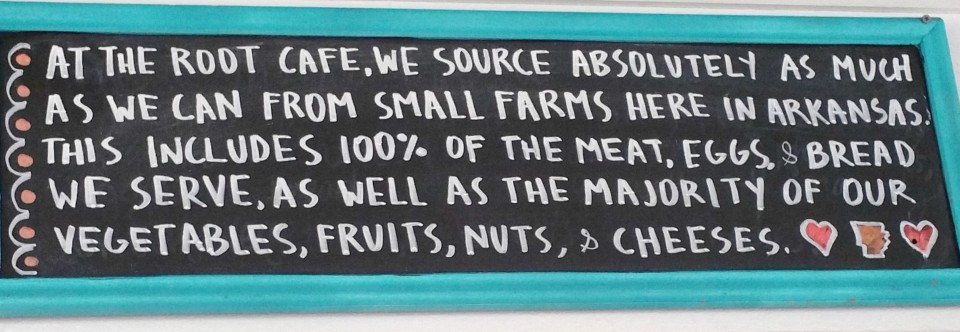 AT THE ROOT CAFE, WE SOURCE ABSOLUTELY AS MUCH
AS WE CAN FROM SMALL FARMS HERE IN ARKANSAS.
THIS INCLUDES 100% OF THE MEAT, EGGS, & BREAD
WE SERVE, AS WELL AS THE MAJORITY OF OUR
VEGETABLES, FRUITS, NUTS, & CHEESES.